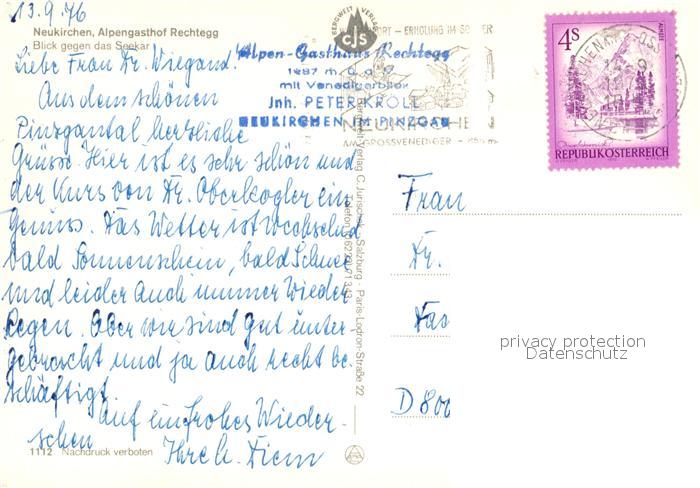 13.9.76
Neukirchen, Alpengasthof Rechtegg
Blick gegen das Seekar
Liebe Frau Dr. Wiegand!
Aus dem schönen
Pinzgautal herzliche
Grüsse. Hier ist es sehr schön und
der Kurs von Dr. Oberkogler ein
Genuss. Das Wetter ist wechselnd
bald Sonnenschein, bald Schnee
und leider auch immer wieder
Regen. Aber wir sind gut unter-
gebracht und ja auch recht be-
schäftigt.
Auf ein frohes Wieder-
sehen
Ihre
1112 Nachdruck verboten
Alpen-Gasthaus Rechtegg
mit Venedigerblick
Inh. PETER KRÖLL
NEUKIRCHEN IM PINZGAU
BERGWELT VERLAG
cJs
ERHOLUNG IM SOMMER
NEUKIRCHEN
AM GROSSVENEDIGER
Bergwelt-Verlag C. Jurischek, Salzburg - Paris-Lodron-Straße 22
4s
ALMSEE
REPUBLIK ÖSTERREICH
Frau
Dr.
D 800
privacy protection
Datenschutz